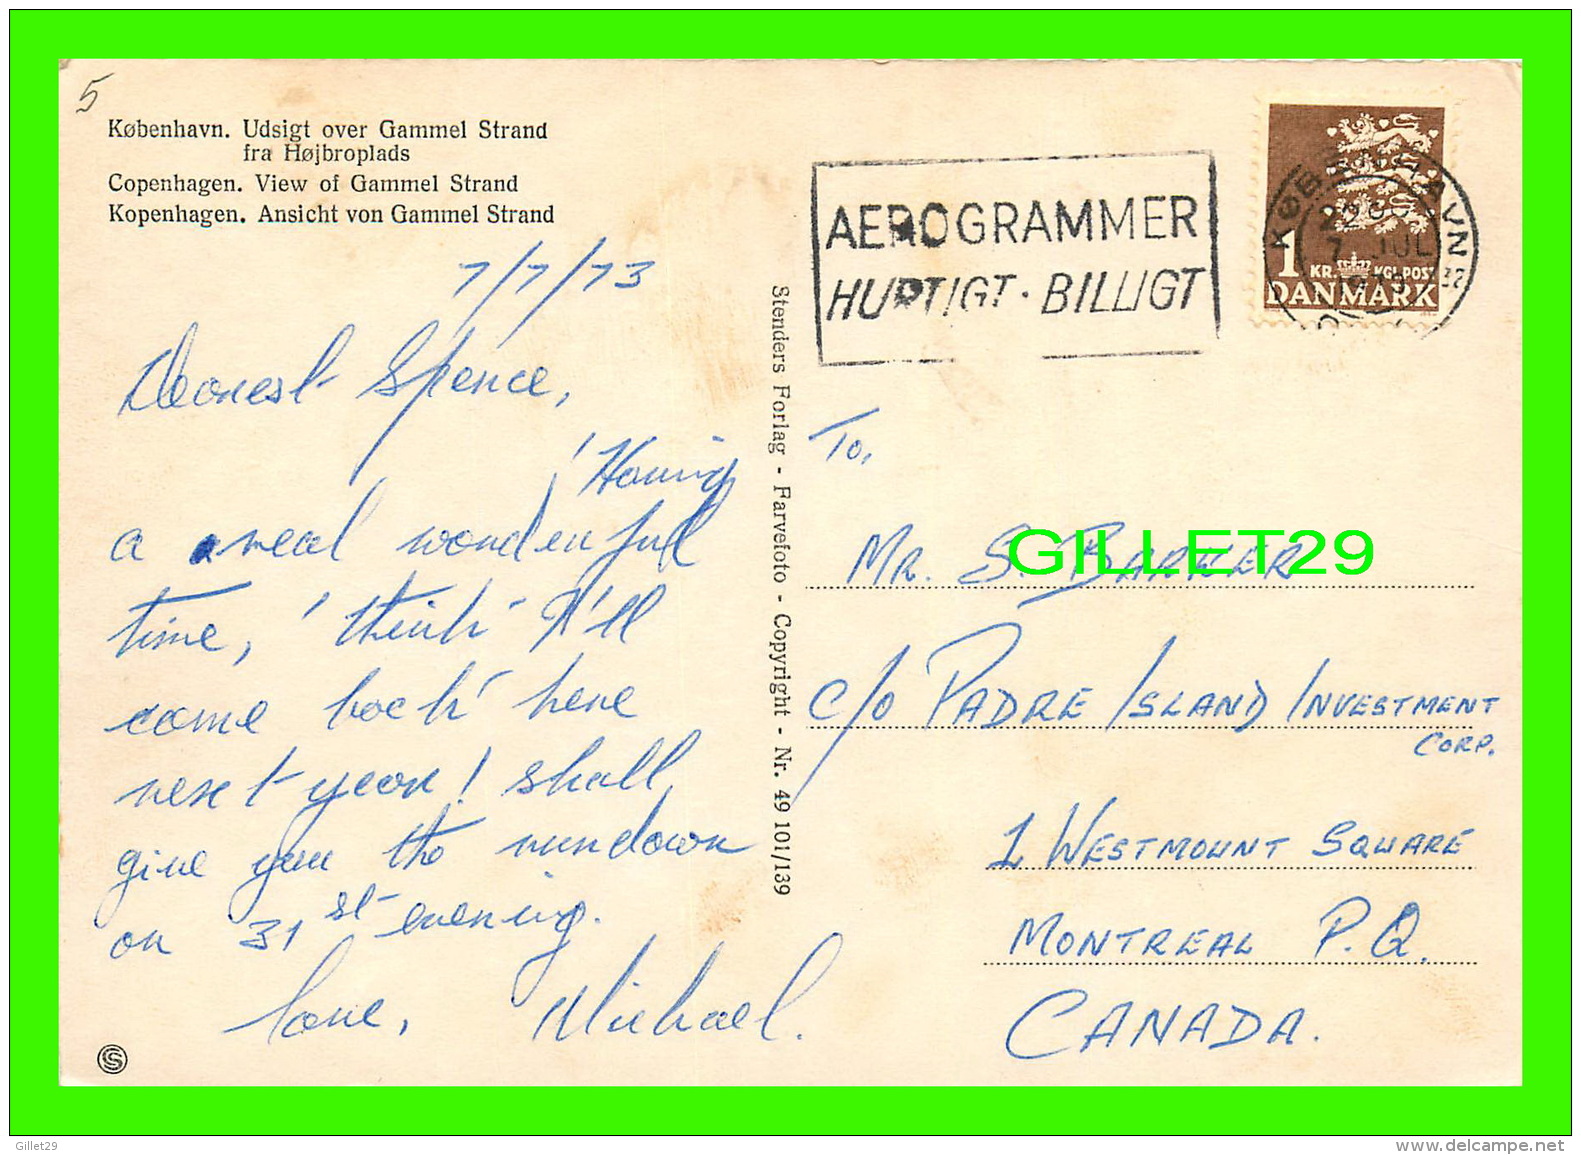 5
København. Udsigt over Gammel Strand
fra Højbroplads
Copenhagen. View of Gammel Strand
Kopenhagen. Ansicht von Gammel Strand
7/7/73
Dearest Spence,
Having
a real wonderful
time, 'think' I'll
come back here
next year! shall
give you the rundown
on 31st evening.
Love, Michael.
Stenders Forlag - Farvefoto - Copyright - Nr. 49 101/139
AEROGRAMMER
HURTIGT · BILLIGT
KØBENHAVN
7 JUL
32
1 KR. KGL.POST
DANMARK
To,
MR. S. BARKER
GILLET29
C/O PADRE ISLAND INVESTMENT
CORP.
1 WESTMOUNT SQUARE
MONTREAL P.Q.
CANADA.
S
Gillet29
delcampe.net